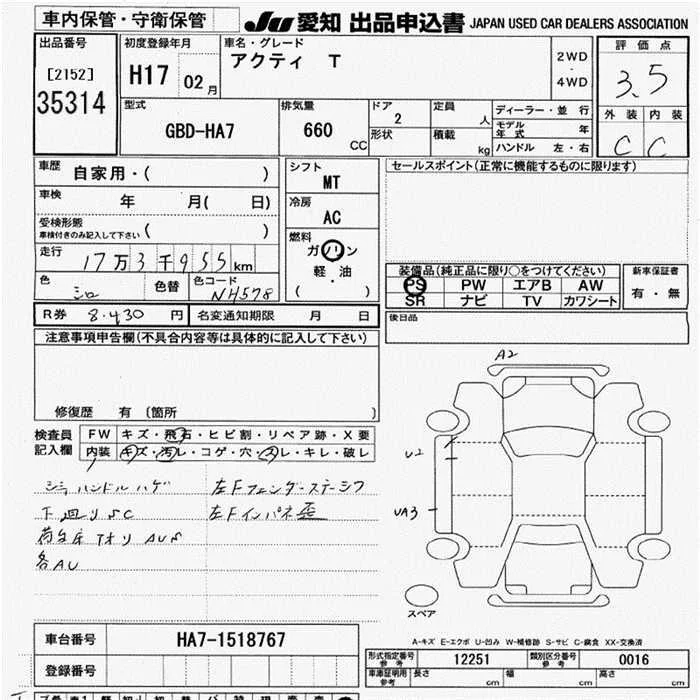 車内保管・守衛保管
JU 愛知 出品申込書 JAPAN USED CAR DEALERS ASSOCIATION
出品番号
[2152]
35314
初度登録年月
H17 02月
車名・グレード
アクティ T
2WD
・
4WD
評価点
3.5
外装 内装
C C
型式
GBD-HA7
排気量
660
CC
ドア
2
形状
定員
人
積載
kg
ディーラー・並行
モデル年式 年
ハンドル 左・右
車歴
自家用・( )
車検
年 月( 日)
受検形態
車検付きのみ記入して下さい ( )
走行
17万3千955km
色
シロ
色替
色コード
NH578
シフト
MT
冷房
AC
燃料
ガソリン
軽・油
( ・ )
セールスポイント(正常に機能するものに限ります)
装備品(純正品に限り○をつけてください)
PS PW エアB AW
SR ナビ TV カワシート
新車保証書
有・無
R券 8.430 円
名変通知期限 月 日
後日品
注意事項申告欄(不具合内容等は具体的に記入して下さい)
修復歴 有 〔箇所 〕
検査員
記入欄
FW キズ・飛石・ヒビ割・リペア跡・X要
内装 キズ・汚レ・コゲ・穴・スレ・キレ・破レ
ハンドルハゲ
下廻りSC
荷台床
各AU
左Fフェンダーステーシフ
左Fインパネ歪
A2
U2
UA3
スペア
A-キズ E-エクボ U-凹み W-補修跡 S-サビ C-腐食 XX-交換済
車台番号
HA7-1518767
登録番号
形式指定番号
参考
12251
類別区分番号
参考
0016
車庫証明用
参考
長さ cm
幅 cm
高さ cm